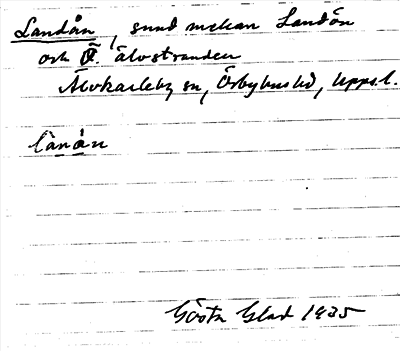 Landån, sund mellan Landön
och Ö. älvstranden
Älvkarleby sn, Örbyhus hd, Upps. l.
lànån
Gösta Glad 1935